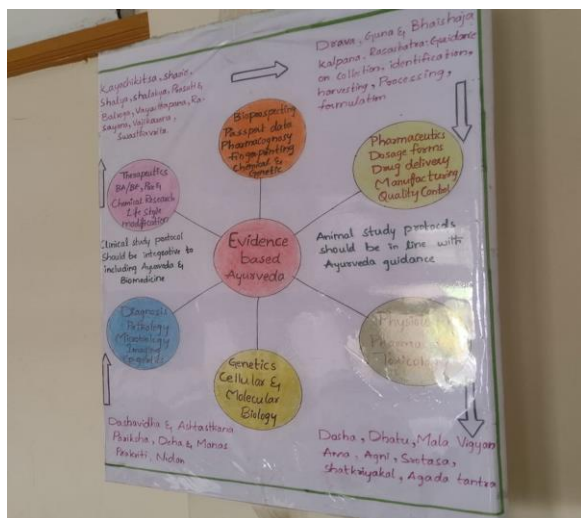 Kayachikitsa, Sharir,
Shalya, shalakya, Prasuti &
Balroga, Vayasthapana, Ra-
sayana, Vajikarana,
Swasthavritta
Dravya, Guna & Bhaishaja
Kalpana, Rasashatra: Guidance
on collection, identification,
harvesting, Processing,
formulation
Bioprospecting
Passport data
Pharmacognosy
fingerprinting
Chemical &
genetic
Pharmaceutics
Dosage forms
Drug delivery
Manufacturing
Quality Control
Therapeutics
BA/BE,
Chemical Research
Life Style
modification
Clinical study protocol
Should be integrative to
including Ayurveda &
Biomedicine
Evidence
based
Ayurveda
Animal study protocols
should be in line with
Ayurveda guidance
Diagnosis
Pathology
Microbiology
Imaging
Genetics
Cellular &
Molecular
Biology
Toxicology
Dashavidha & Ashtasthana
Pariksha, Deha & Manas
Prakriti, Nidan
Dosha, Dhatu, Mala Vigyan
Ama, Agni, Srotasa,
shatkriyakal, Agada tantra